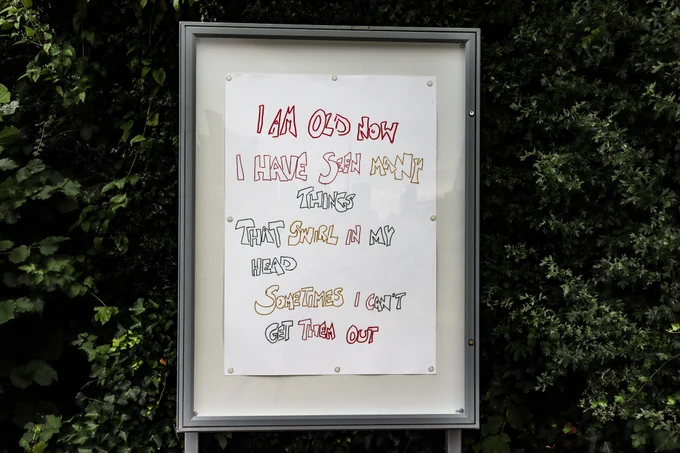 I AM OLD NOW
I HAVE SEEN MANY
THINGS
THAT SWIRL IN MY
HEAD
SOMETIMES I CAN'T
GET THEM OUT